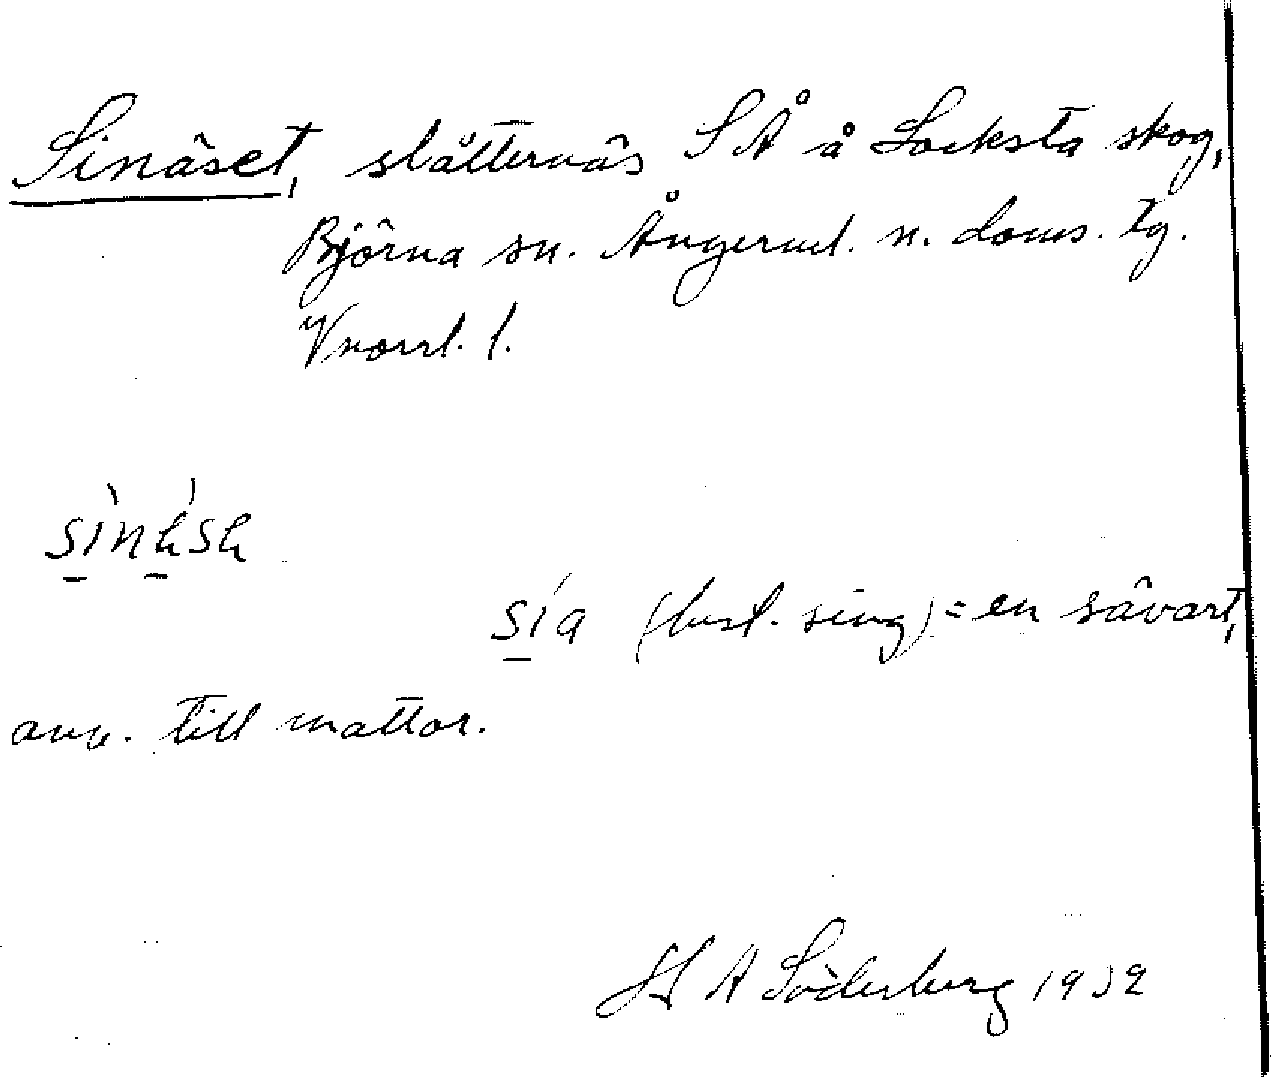 Sinäset, slåtternäs SÅ å Locksta skog,
Björna sn. Ångerml. n. doms. tg.
Vnorrl. l.
sia (best. sing) = en sävart,
anv. till mattor.
H A Söderberg 1932